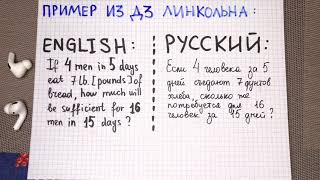 ПРИМЕР ИЗ ДЗ ЛИНКОЛЬНА:
ENGLISH:
If 4 men in 5 days
eat 7 lb. [pounds] of
bread, how much will
be sufficient for 16
men in 15 days?
РУССКИЙ:
Если 4 человека за 5
дней съедают 7 фунтов
хлеба, сколько же
потребуется для 16
человек за 15 дней?